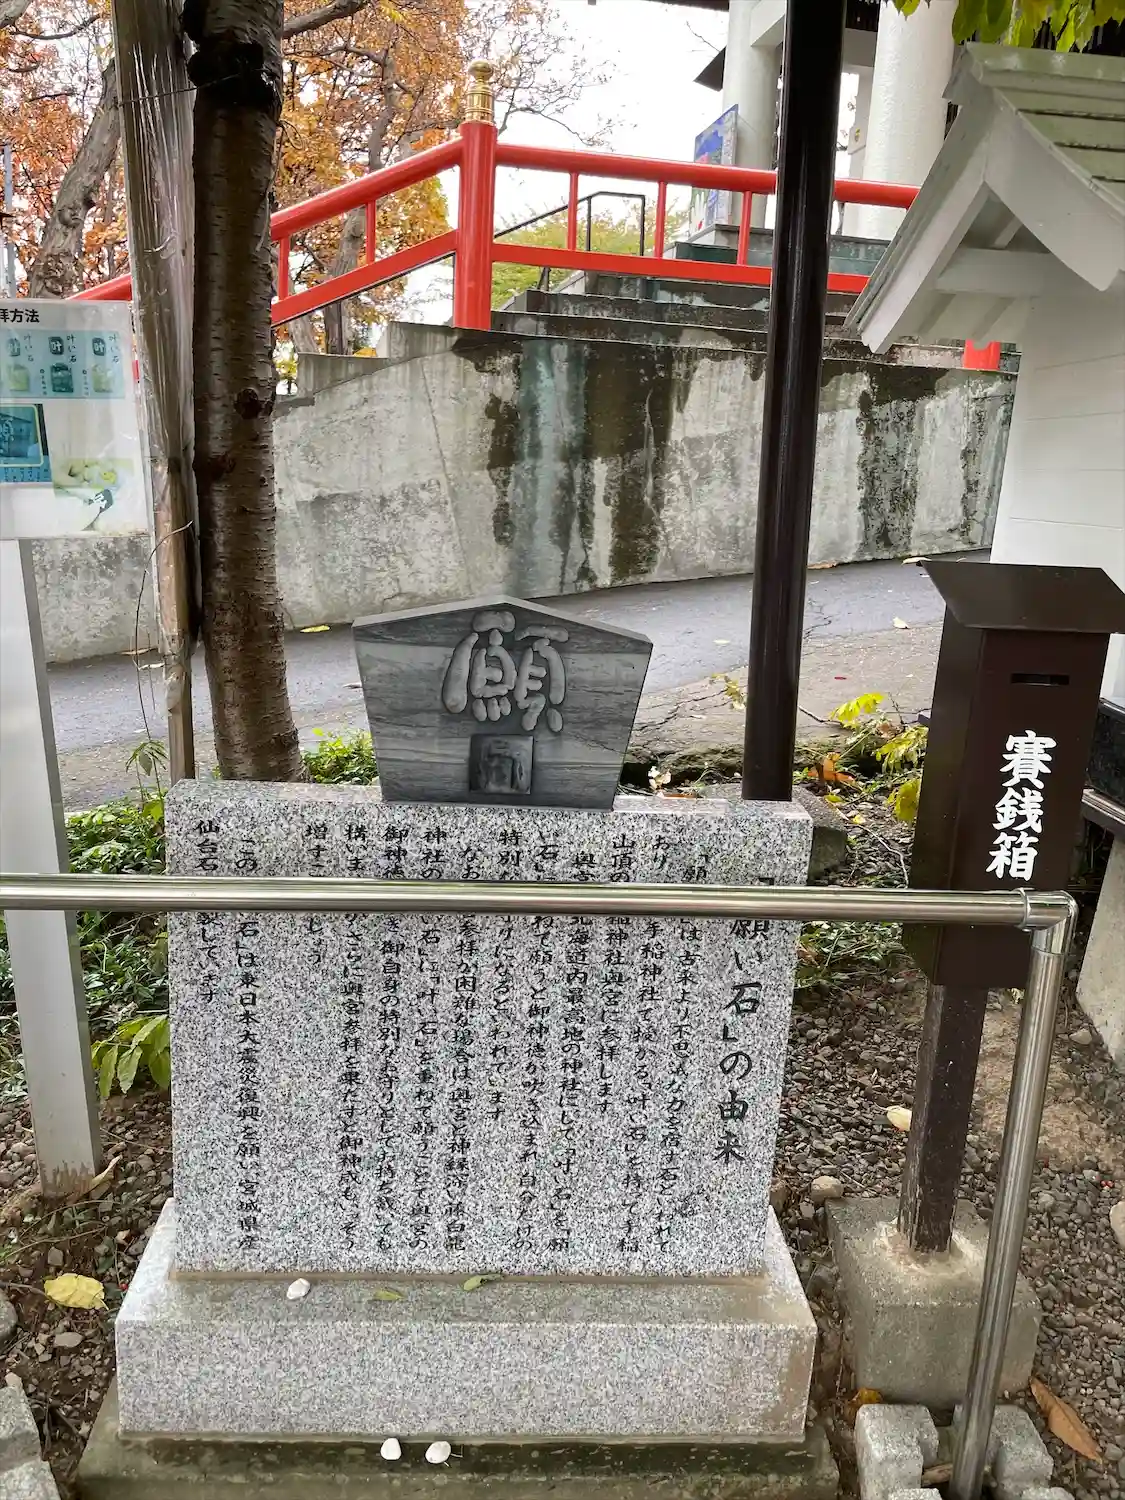 拝方法
叶い石
叶い石
叶い石
叶
願
「願い石」の由来
「願は古来より不思議な力を宿す石といわれて
おり手稲神社で授かる「叶い石」を持って手稲
山頂の稲神社奥宮に参拝します
奥宮北海道内最高地の神社にして「叶い石」を「願
い石」にねて願うと御神徳が吹き込まれ自分だけの
特別なになるといわれています
なお参拝が困難な場合は奥宮と神縁深い藤白龍
神社のい石」に「叶い石」を重ねて願うことで奥宮の
御神徳き御自身の特別なお守りとしてお持ち戴いても
構まがさらに奥宮参拝を果たすと御神威も、ぞう
増すこしょう
この石」は東日本大震災復興を願い宮城県産
仙台石製しています
賽銭箱